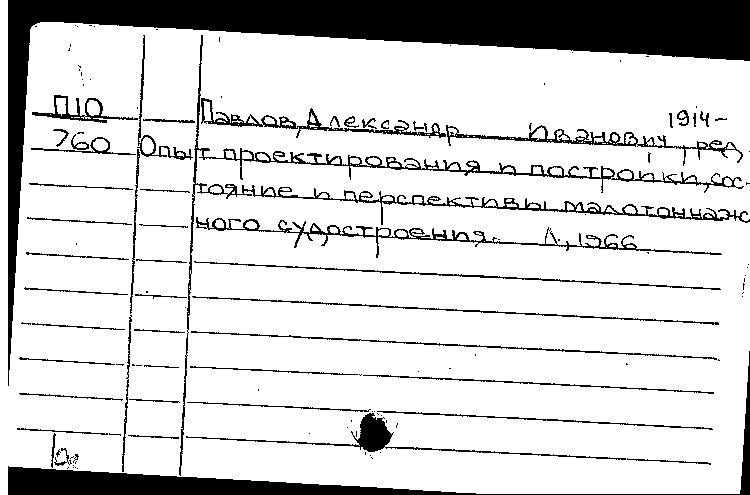 1914-
П10 Павлов, Александр Иванович, ред.
760 Опыт проектирования и постройки, сос-
тояние и перспективы малотоннаж
ного судостроения. Л., 1966